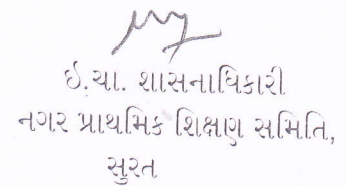 ઇ.ચા. શાસનાધિકારી
નગર પ્રાથમિક શિક્ષણ સમિતિ,
સુરત